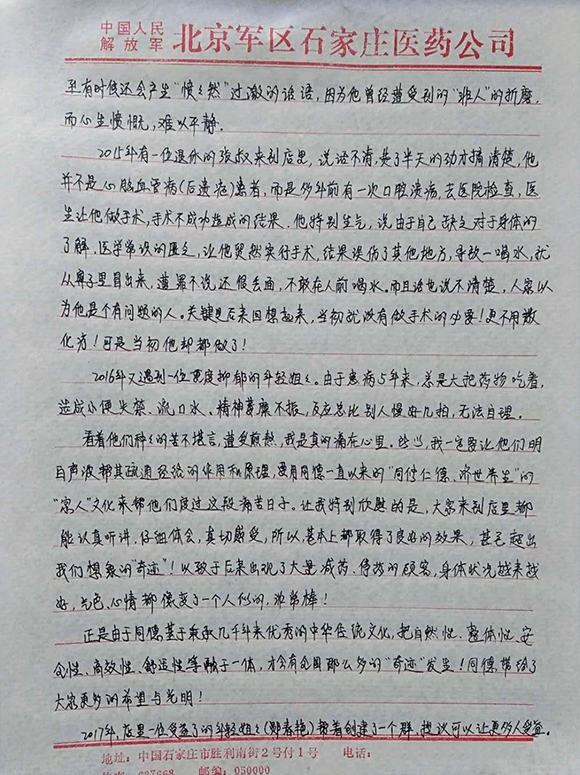 中国人民
解放军
北京军区石家庄医药公司
至有时候还会产生“愤愤然”过激的话语，因为他曾经遭受到的“非人”的折磨，
而心生愤慨，难以平静.
2015年有一位退休的张叔来到店里，说话不清，费了半天的功才搞清楚，他
并不是心脑血管病(后遗症)患者，而是多年前有一次口腔溃疡，去医院检查，医
生让他做手术，手术不成功造成的结果.他特别生气，说由于自己缺乏对于身体的
了解、医学常识的匮乏，让他贸然实行手术，结果误伤了其他地方，导致一喝水，就
从鼻子里冒出来，遭罪不说还很丢面，不敢在人前喝水。而且话也说不清楚，人家以
为他是个有问题的人。关键是后来回想起来，当初就没有做手术的必要！更不用散
化方！可是当初他却都做了！
2016年又遇到一位重度抑郁的年轻姐姐。由于患病5年来，总是大把药物吃着，
造成小便失禁、流口水、精神萎靡不振，反应总比别人慢好几拍，无法自理。
看着他们种种的苦不堪言，遭受煎熬，我是真的痛在心里。些当，我一定要让他们明
白声波帮其疏通经络的作用和原理，要用同德一直以来的“同修仁德、济世养生”的
“家人”文化来帮他们度过这段痛苦日子。让我特别欣慰的是，大家来到店里都
能认真听讲、仔细体会，真切感受，所以，基本上都取得了良好的效果，甚至超出
我们想象的“奇迹”！以致于后来出现了大量减药、停药的顾客，身体状况越来越
好，气色、心情都像变了一个人似的，非常棒！
正是由于同德基于秉承几千年来优秀的中华传统文化，把自然性、整体性、安
全性、高效性、舒适性等融于一体，才会有全国那么多的“奇迹”发生！同德带给了
大家更多的希望与光明！
2017年，店里一位受益了的年轻姐姐(鄢春艳)帮着创建了一个群，提议可以让更多人受益.
地址：中国石家庄市胜利南街2号付1号 电话：
邮编：050000